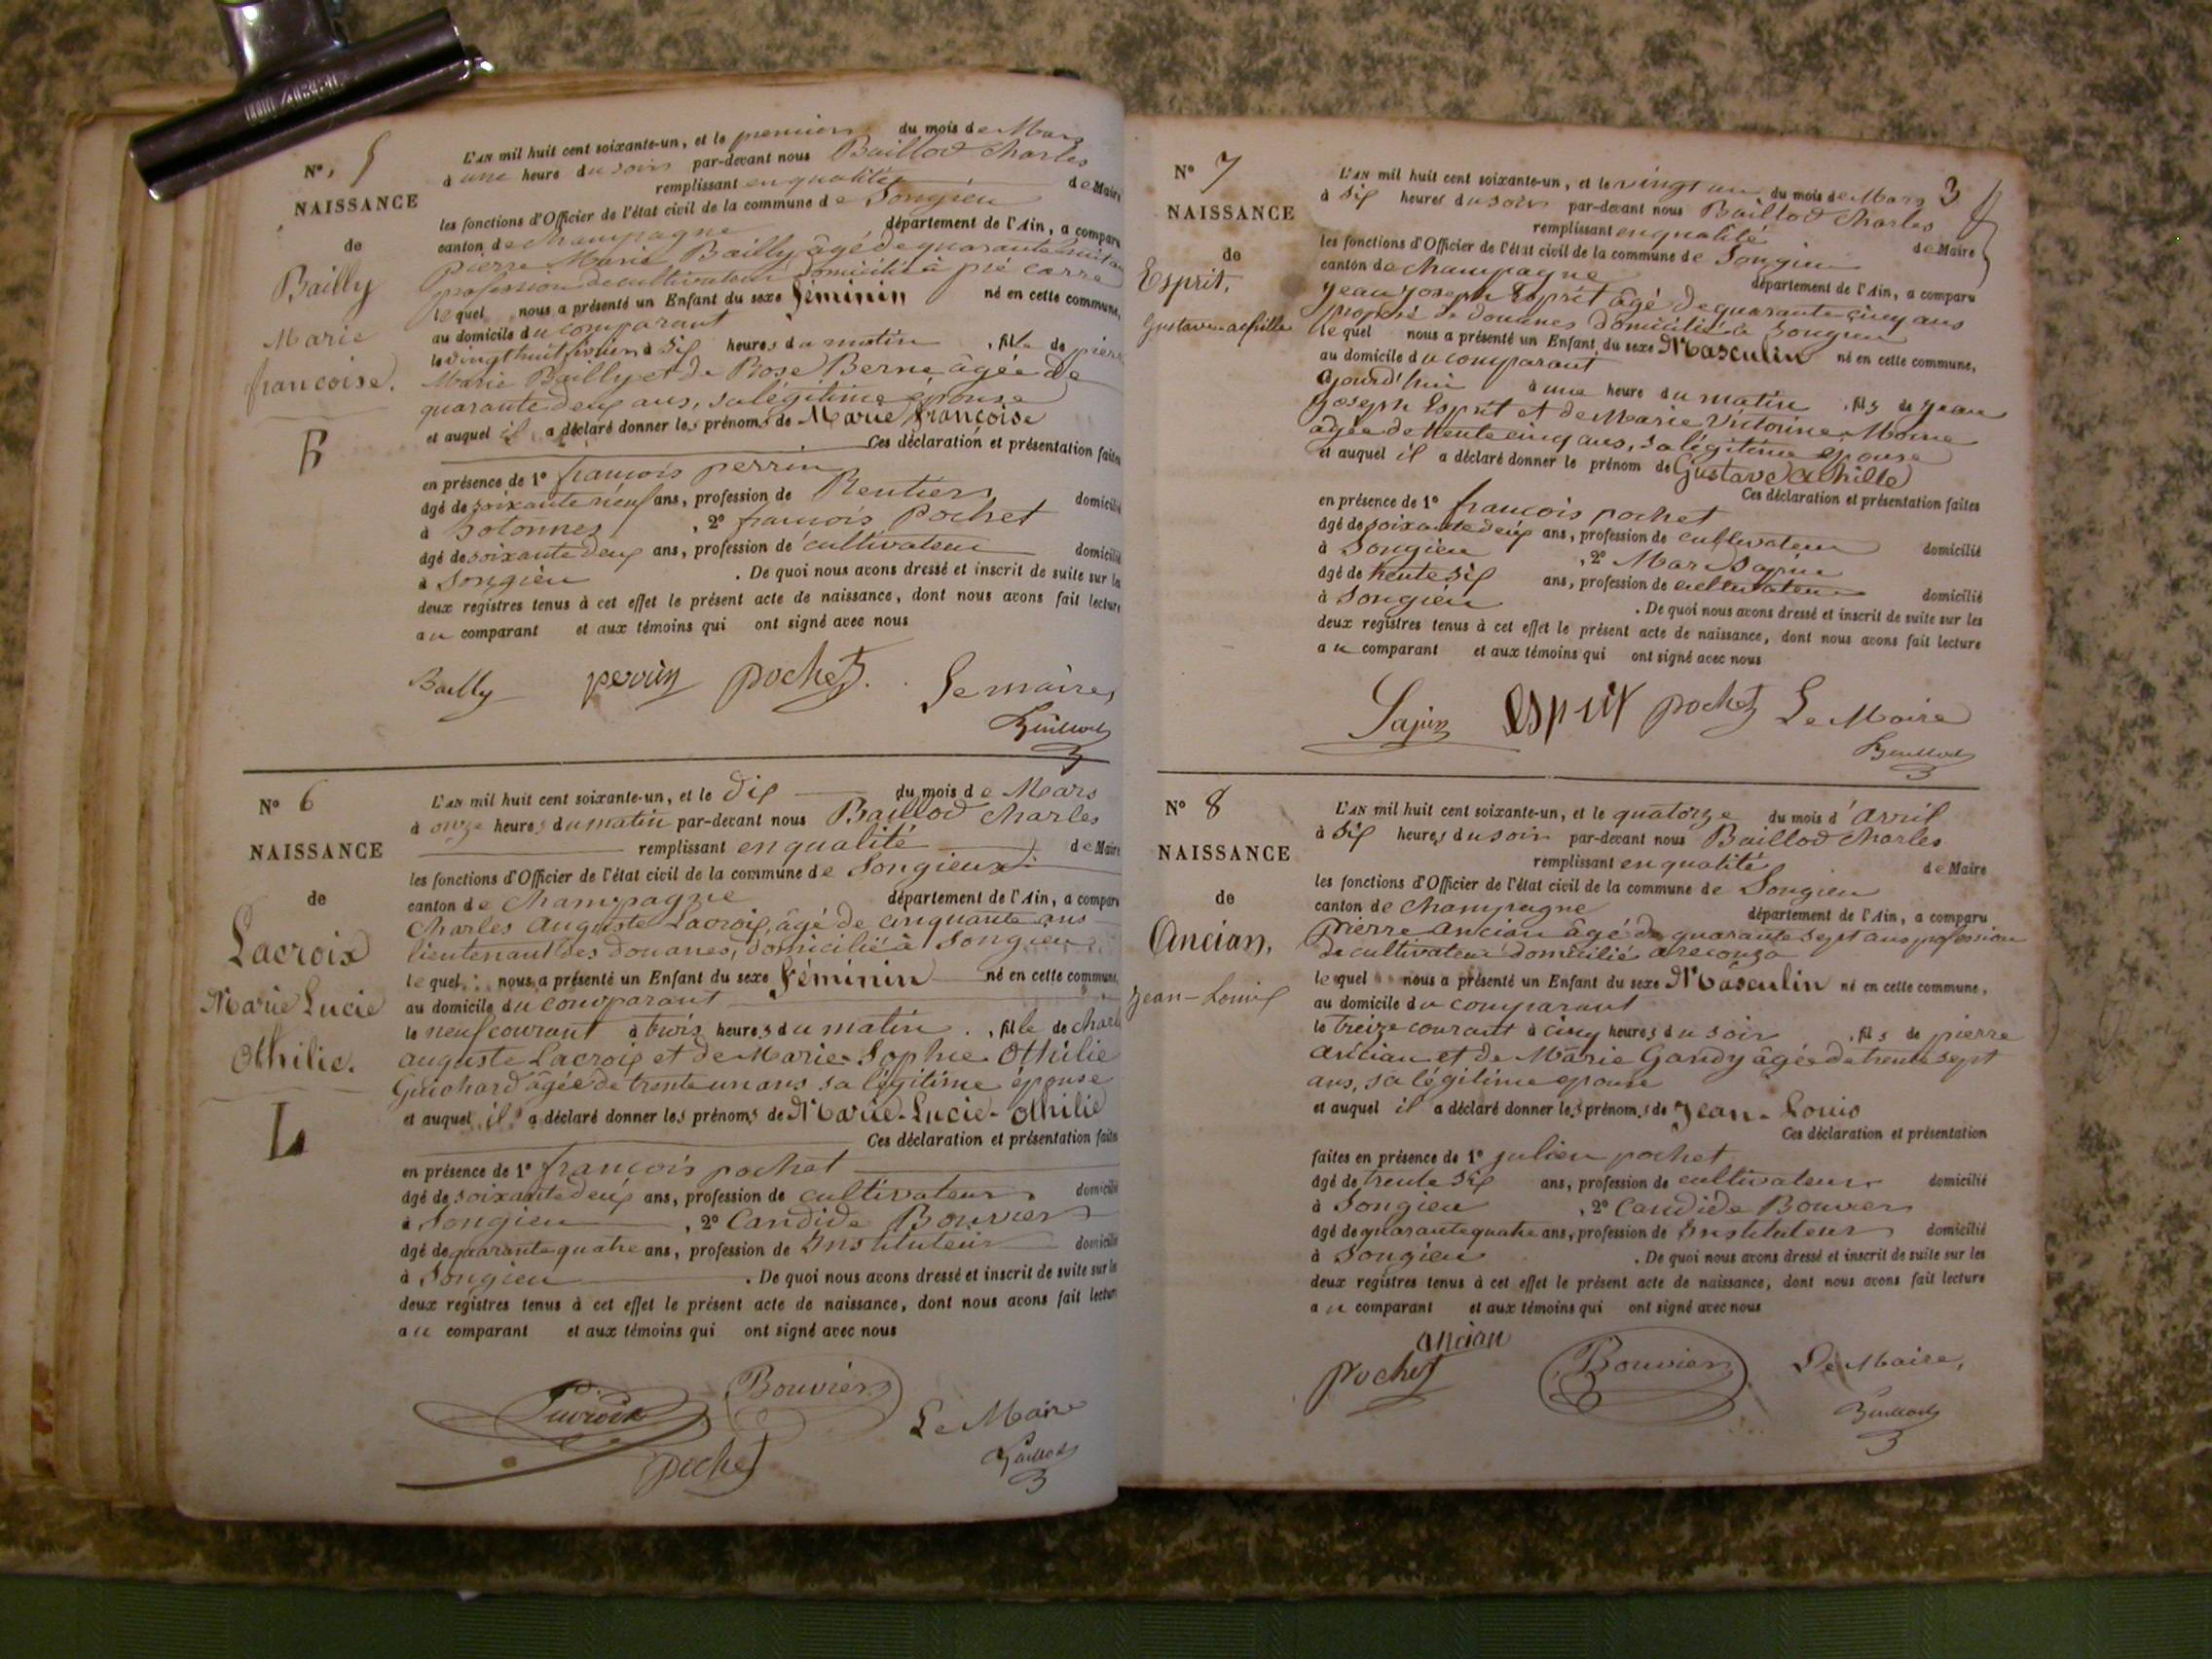 N° 5
NAISSANCE
de
Bailly
Marie
françoise.
B
L'AN mil huit cent soixante-un, et le premier du mois de Mars
à une heure du soir par-devant nous Baillod Charles
remplissant en qualité de Maire
les fonctions d'Officier de l'état civil de la commune de Songieu
canton de Champagne département de l'Ain, a comparu
pierre Marie Bailly âgé de quarante huit ans
profession de cultivateur domicilié à pré carré
lequel nous a présenté un Enfant du sexe féminin né en cette commune,
au domicile du comparant
le vingt huit février à dix heures du matin, fille de pierre
Marie Bailly et de Rose Berne âgée de
quarante deux ans, sa légitime épouse
et auquel il a déclaré donner les prénoms de Marie françoise
Ces déclaration et présentation faites
en présence de 1° françois perrin
âgé de soixante neuf ans, profession de Rentier domicilié
à hotonnes, 2° françois Pochet
âgé de soixante deux ans, profession de cultivateur domicilié
à Songieu. De quoi nous avons dressé et inscrit de suite sur les
deux registres tenus à cet effet le présent acte de naissance, dont nous avons fait lecture
au comparant et aux témoins qui ont signé avec nous
Bailly perrin pochet. Le maire,
Baillod
N° 6
NAISSANCE
de
Lacroix
Marie Lucie
Othilie.
L
L'AN mil huit cent soixante-un, et le dix du mois de Mars
à onze heures du matin par-devant nous Baillod Charles
remplissant en qualité de Maire
les fonctions d'Officier de l'état civil de la commune de Songieux
canton de Champagne département de l'Ain, a comparu
Charles Auguste Lacroix, âgé de cinquante ans
lieutenant des douanes, domicilié à Songieu
lequel nous a présenté un Enfant du sexe féminin né en cette commune,
au domicile du comparant
le neuf courant à trois heures du matin, fille de Charles
auguste Lacroix et de Marie Sophie Othilie
Guichard âgée de trente un ans sa légitime épouse
et auquel il a déclaré donner les prénoms de Marie-Lucie-Othilie
Ces déclaration et présentation faites
en présence de 1° françois pochet
âgé de soixante deux ans, profession de cultivateur domicilié
à Songieu, 2° Candide Bouvier
âgé de quarante quatre ans, profession de Instituteur domicilié
à Songieu. De quoi nous avons dressé et inscrit de suite sur les
deux registres tenus à cet effet le présent acte de naissance, dont nous avons fait lecture
au comparant et aux témoins qui ont signé avec nous
Lacroix Bouvier
pochet Le Maire
Baillod
3
N° 7
NAISSANCE
de
Esprit,
Gustave achille
L'AN mil huit cent soixante-un, et le vingt un du mois de Mars
à six heures du soir par-devant nous Baillod Charles
remplissant en qualité de Maire
les fonctions d'Officier de l'état civil de la commune de Songieu
canton de Champagne département de l'Ain, a comparu
Jean Joseph Esprit âgé de quarante cinq ans
préposé de douanes domicilié à Songieu
lequel nous a présenté un Enfant du sexe Masculin né en cette commune,
au domicile du comparant
ajourd'hui à une heure du matin, fils de Jean
Joseph Esprit et de Marie Victorine Moine
âgée de trente cinq ans, sa légitime epouse
et auquel il a déclaré donner le prénom de Gustave Achille
Ces déclaration et présentation faites
en présence de 1° françois pochet
âgé de soixante deux ans, profession de cultivateur domicilié
à Songieu, 2°
âgé de trente six ans, profession de cultivateur domicilié
à Songieu. De quoi nous avons dressé et inscrit de suite sur les
deux registres tenus à cet effet le présent acte de naissance, dont nous avons fait lecture
au comparant et aux témoins qui ont signé avec nous
esprit pochet Le Maire
Baillod
N° 8
NAISSANCE
de
Ancian,
Jean-Louis
L'AN mil huit cent soixante-un, et le quatorze du mois d'avril
à six heures du soir par-devant nous Baillod Charles
remplissant en qualité de Maire
les fonctions d'Officier de l'état civil de la commune de Songieu
canton de Champagne département de l'Ain, a comparu
Pierre Ancian âgé de quarante sept ans profession
de cultivateur domicilié
lequel nous a présenté un Enfant du sexe Masculin né en cette commune,
au domicile du comparant
le treize courant à cinq heures du soir, fils de pierre
Ancian et de Marie Gandy âgée de trente sept
ans, sa légitime epouse
et auquel il a déclaré donner les prénoms de Jean-Louis
Ces déclaration et présentation
faites en présence de 1° julien pochet
âgé de trente six ans, profession de cultivateur domicilié
à Songieu, 2° Candide Bouvier
âgé de quarante quatre ans, profession de Instituteur domicilié
à Songieu. De quoi nous avons dressé et inscrit de suite sur les
deux registres tenus à cet effet le présent acte de naissance, dont nous avons fait lecture
au comparant et aux témoins qui ont signé avec nous
ancian
pochet Bouvier Le Maire,
Baillod